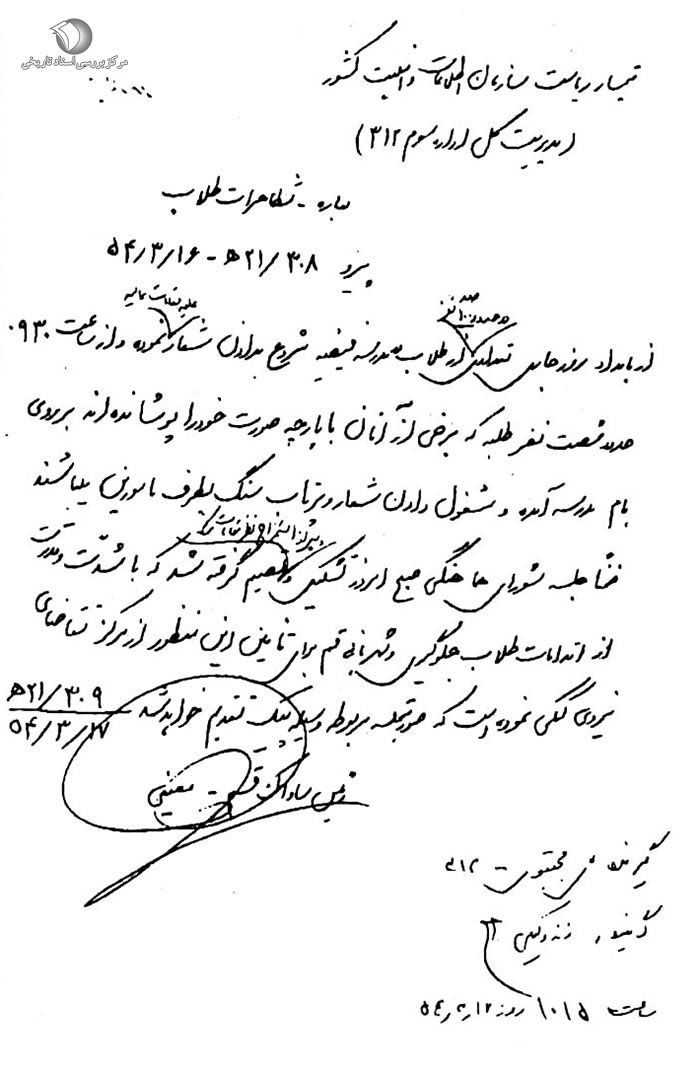 مرکز بررسی اسناد تاریخی
تیمسار ریاست سازمان اطلاعات و امنیت کشور
(مدیریت کل اداره سوم ۳۱۲)
درباره - تظاهرات طلاب
پیرو ۳۰۸/ه۲۱ - ۵۴/۳/۱۶
نفر
علیه مقامات عالیه
از بامداد روز جاری تعدادی از طلاب مدرسه فیضیه شروع بدادن شعار نموده و از ساعت ۰۹۳۰
حدود شصت نفر طلبه که برخی از آنان با پارچه صورت خود را پوشانده اند بر روی
بام مدرسه آمده و مشغول دادن شعار و پرتاب سنگ بطرف مامورین میباشند
ضمناً جلسه شورای هماهنگی صبح امروز تشکیل و تصمیم گرفته شد که با شدت و قدرت
از اقدامات طلاب جلوگیری و شهربانی قم برای تامین این منظور از مرکز تقاضای
نیروی کمکی نموده است که صورتجلسه مربوطه وسیله پیک تقدیم خواهد شد
۳۰۹/ه۲۱
۵۴/۳/۱۷
رئیس ساواک قم - معینی
گیرنده مجتبوی ۳۱۲
گوینده زندوکیلی
ساعت ۱۰۱۵ روز